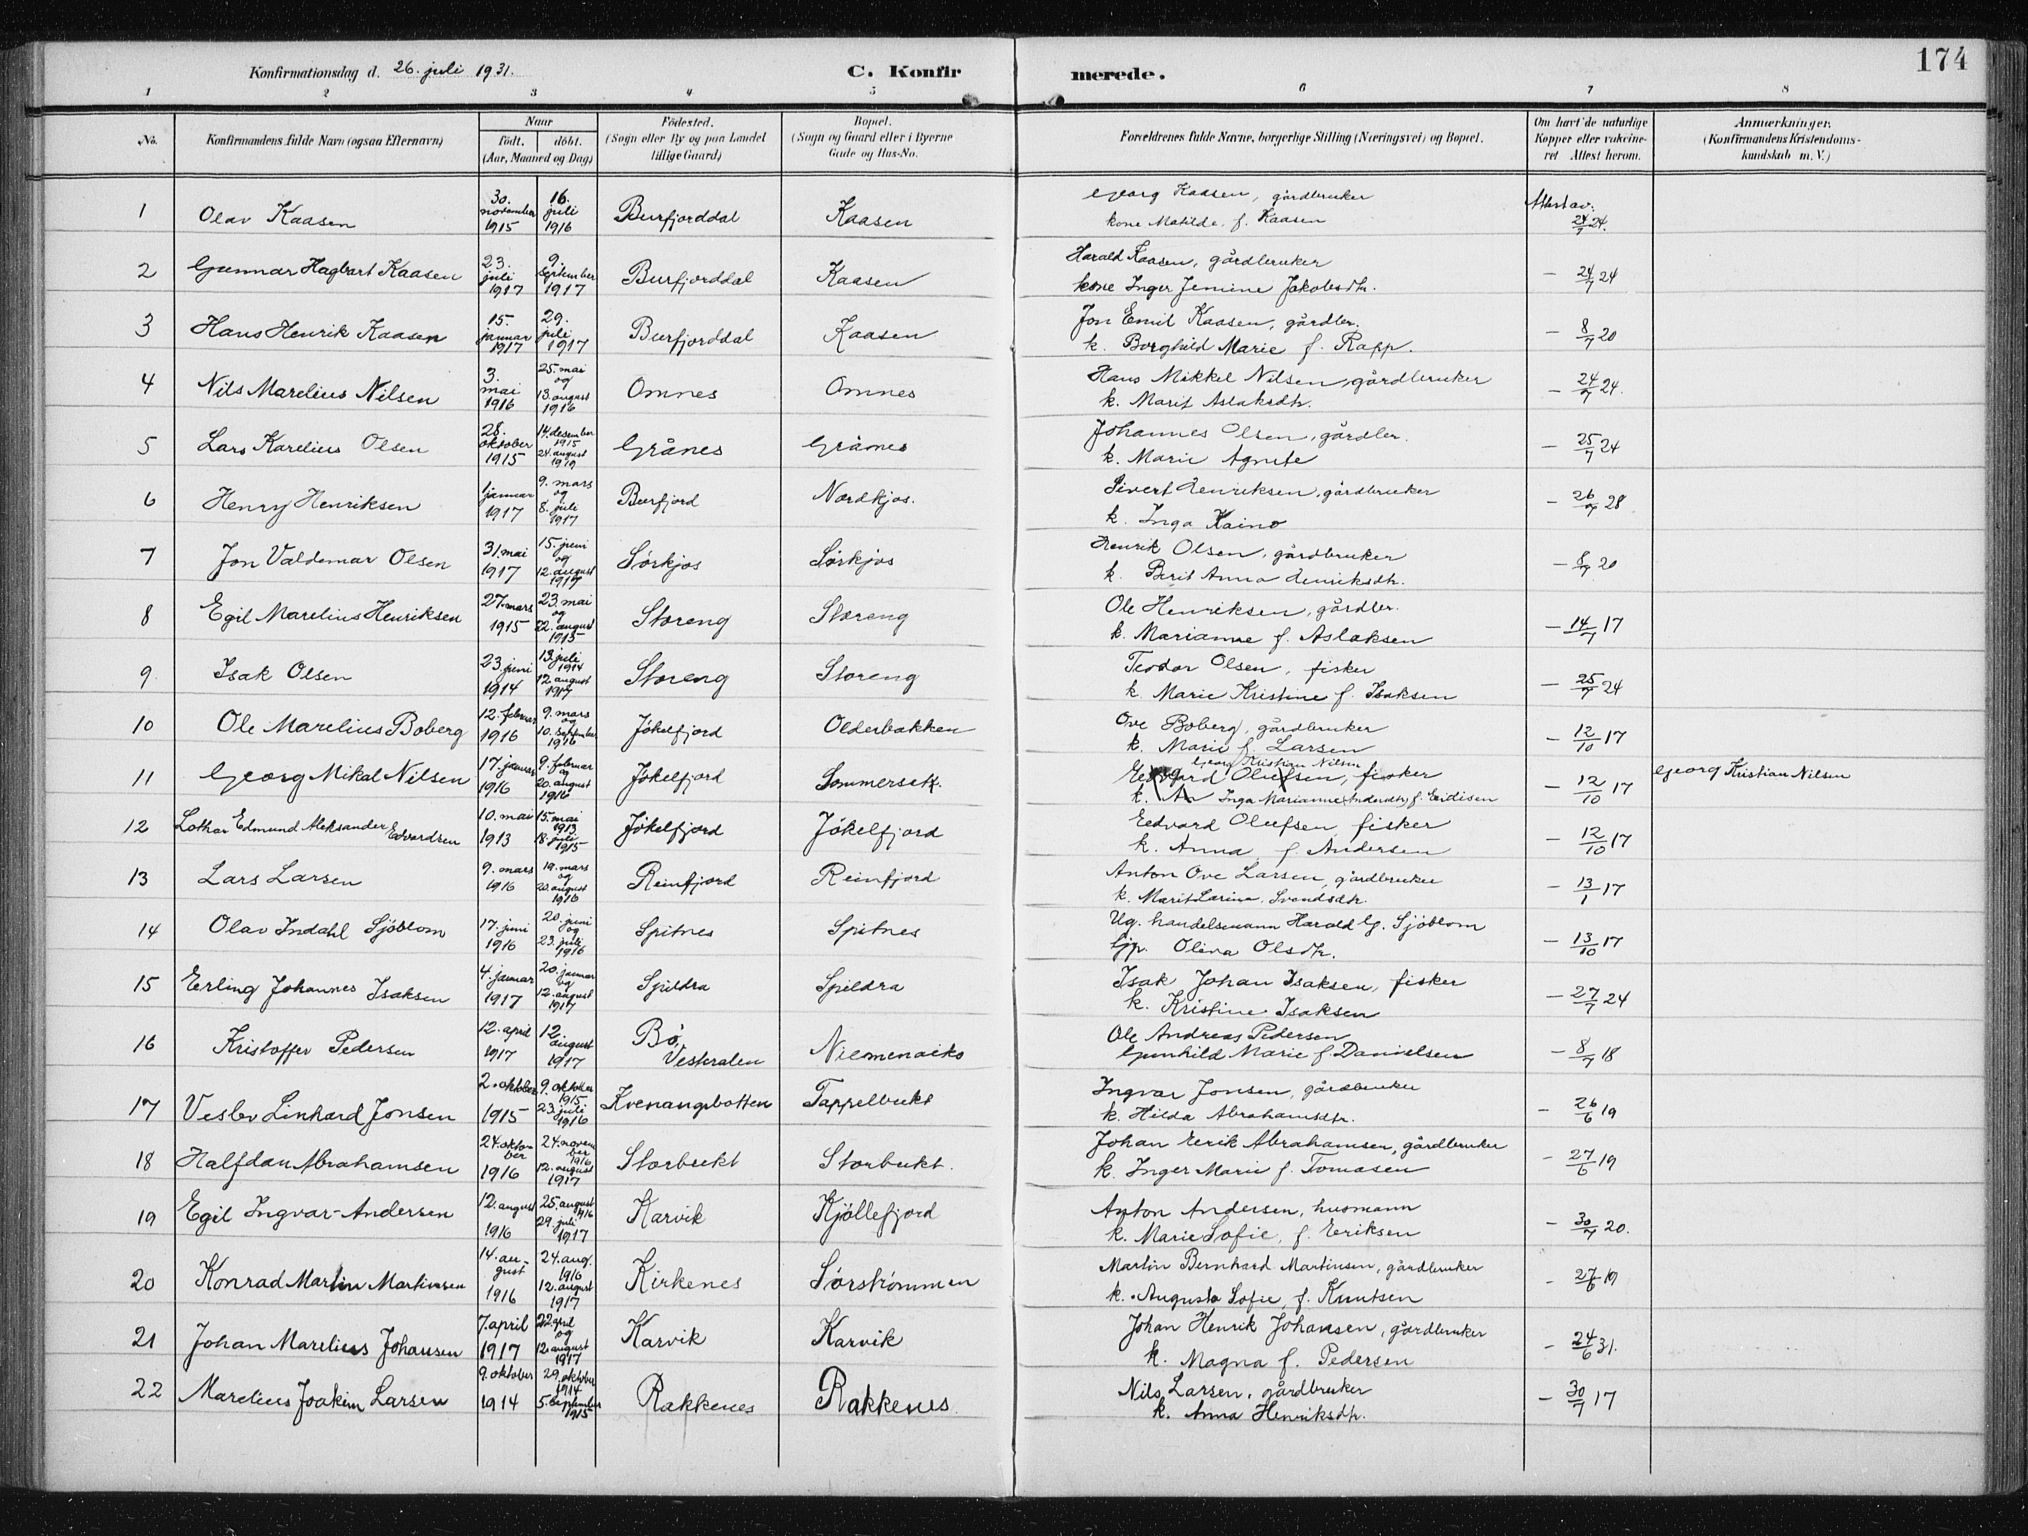 174
Konfirmationsdag d. 26. juli 1931. C. Konfirmerede.
1 2 3 4 5 6 7 8
No. Konfirmandens fulde Navn (ogsaa Efternavn) Naar født, døbt. (Aar, Maaned og Dag) Fødested. (Sogn eller By og paa Landet tillige Gaard) Bopæl. (Sogn og Gaard eller i Byerne Gade og Hus-No. Forældrenes fulde Navne, borgerlige Stilling (Næringsvei) og Bopæl. Om havt de naturlige Kopper eller vakcineret Attest herom. Anmærkninger. (Konfirmandens Kristendomskundskab m. V.)
1 Olav Kaasen 30. november 1915 16. juli 1916 Burfjorddal Kaasen Georg Kaasen, gårdbruker kone Matilde f. Kaasen Attest av. 24/7 24.
2 Gunnar Hagbart Kaasen 23. juli 1917 9. september 1917 Burfjorddal Kaasen Harald Kaasen, gårdbruker kone Inger Jemine Jakobsdtr. – 24/7 24
3 Hans Henrik Kaasen 15. januar 1917 29. juli 1917 Burfjorddal Kaasen Jon Emil Kaasen, gårdbr. k. Borghild Marie f. Rapp. – 8/7 20
4 Nils Marelius Nilsen 3. mai 1916 25. mai og 13. august 1916 Omnes Omnes Hans Mikkel Nilsen, gårdbruker k. Marit Aslaksdtr. – 24/7 24.
5 Lars Karelius Olsen 28. oktober 1915 14. desember 1915 24. august 1919 Grånes Grånes Johannes Olsen, gårdbr. k. Marie Agnete – 25/7 24
6 Henry Henriksen 1 januar 1917 9. mars og 8. juli 1917 Burfjord Nordkjos. Sivert Henriksen, gårdbruker k. Inga Kaino – 26/7 28
7 Jon Valdemar Olsen 31. mai 1917 15. juni og 12. august 1917 Sørkjos Sørkjos Henrik Olsen, gårdbruker k. Berit Anna Henriksdtr. – 8/7 20
8 Egil Marelius Henriksen 27. mars 1915 23. mai og 22. august 1915 Storeng Storeng Ole Henriksen, gårdbr. k. Marianne f. Aslaksen – 14/7 17
9 Isak Olsen 23. juni 1914 13. juli 1914 12. august 1917 Storeng Storeng Teodor Olsen, fisker k. Marie Kristine f. Isaksen – 25/7 24
10 Ole Marelius Boberg 12. februar 1916 9. mars og 10. september 1916 Jøkelfjord Olderbakken Ove Boberg, gårdbruker k. Marie f. Larsen – 12/10 17
11 Georg Mikal Nilsen 17. januar 1916 9. februar og 20. august 1916 Jøkelfjord Sommerset. Georg Kristian Nilsen Edvard Olufsen, fisker k. An Inga Marianne Andersdtr, f. Eidisen – 12/10 17 Georg Kristian Nilsen
12 Lothar Edmund Aleksander Edvardsen 10. mai 1913 15. mai 1913 18. juli 1915 Jøkelfjord Jøkelfjord Edvard Olufsen, fisker k. Anna f. Andersen – 12/10 17
13 Lars Larsen 9. mars 1916 19. mars og 20. august 1916 Reinfjord Reinfjord Anton Ove Larsen, gårdbruker k. Marit Larina Svendsdtr. – 13/1 17
14 Olav Indahl Sjöblom 17. juni 1916 20. juni og 23. juli 1916 Spitnes Spitnes Ug. handelsmann Harald G. Sjöblom Gp. Oliva Olsdtr. – 13/10 17
15 Erling Johannes Isaksen 4. januar 1917 20. januar og 12. august 1917 Spildra Spildra Isak Johan Isaksen, fisker k. Kristine Isaksen – 27/7 24
16 Kristoffer Pedersen 12. april 1917 12. august 1917 Bø, Vesteralen Niemenaiko Ole Andreas Pedersen Gunhild Marie f. Danielsen – 8/7 18
17 Veslev Linhard Jonsen 2. oktober 1915 9. oktober 1915 23. juli 1916 Kvenangsbotten Tappelbukt Ingvar Jonsen, gårdbruker k. Hilda Abrahamsdtr. – 26/6 19
18 Halfdan Abrahamsen 24. oktober 1916 24. november 1916 12. august 1917 Storbukt Storbukt. Johan Eerik Abrahamsen, gårdbruker k. Inger Marie f. Tomasen – 27/6 19
19 Egil Ingvar Andersen 12. august 1916 25. august 1916 29. juli 1917 Karvik Kjöllefjord Anton Andersen, husmann k. Marie Sofie, f. Eeriksen – 30/7 20.
20 Konrad Martin Martinsen 14. august 1916 24. aug. 1916 12. august 1917 Kirkenes Sørstrømmen Martin Bernhard Martinsen, gårdbruker k. Augusta Sofie, f. Knutsen – 27/6 19
21 Johan Marelius Johansen 7. april 1917 22. april og 12. august 1917 Karvik Karvik Johan Henrik Johansen, gårdbruker k. Magna f. Pedersen – 24/6 31.
22 Marelius Joakim Larsen 9. oktober 1914 29. oktober 1914 5. september 1915 Rakkenes Rakkenes. Nils Larsen, gårdbruker k. Anna Henriksdtr. – 30/7 17